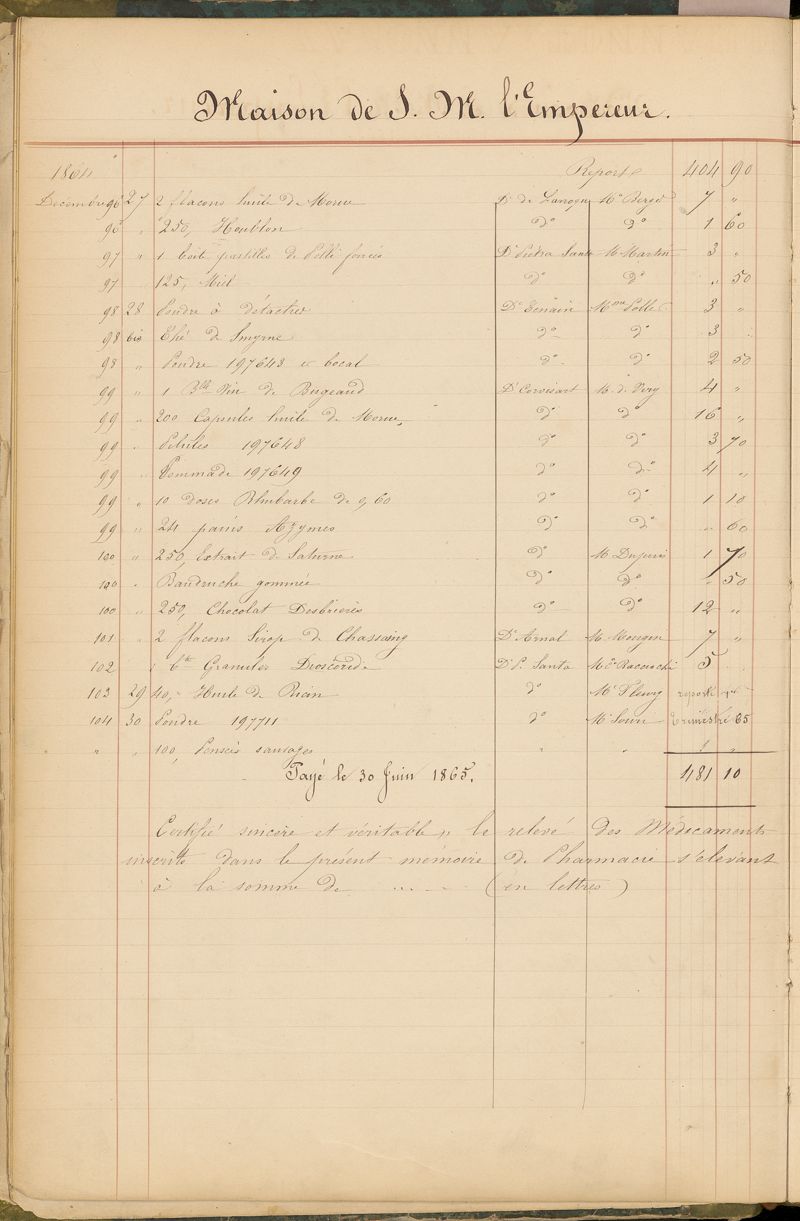 Maison de S. M. l'Empereur.
1864 Report 404 90
Décembre 96 27 2 flacons huile de Morue Dr de Mr Berger 7 "
96 " 250, Houblon do do 1 60
97 " 1 boîte pastilles de Dr Pietra Santa Mr Martin 3 "
97 125, Miel do do " 50
98 28 Poudre à détacher Dr Mme 3 "
98 bis Thé de Smyrne do do 3
98 " Poudre 197643 & bocal do do 2 50
99 " 1 Blle Vin de Bugeaud Dr Corvisart Mr de Viry 4 "
99 " 200 Capsules huile de Morue do do 16 "
99 " Pilules 197648 do do 3 70
99 " Pommade 197649 do do 4 "
99 " 10 doses Rhubarbe de 0,60 do do 1 10
99 " 24 pains Azymes do do " 60
100 " 250, Extrait de Saturne do Mr Dupuis 1 70
100 " Baudruche gommée do do " 50
100 " 250, Chocolat Desbrières do do 12 "
101 " 2 flacons Sirop de Chassaing Dr Arnal Mr Mougin 7 "
102 1 bte Granules Dioscoride Dr P. Santa 5
103 29 40, Huile de Ricin do Mr Fleury reporté
104 30 Poudre 197711 do Mr Trimestre 65
" " " 100, Pensées sauvages " " " "
Payé le 30 Juin 1865. 481 10
Certifié sincère et véritable, le relevé des Médicaments
inscrits dans le présent mémoire de Pharmacie s'élevant
à la somme de ... (en lettres)